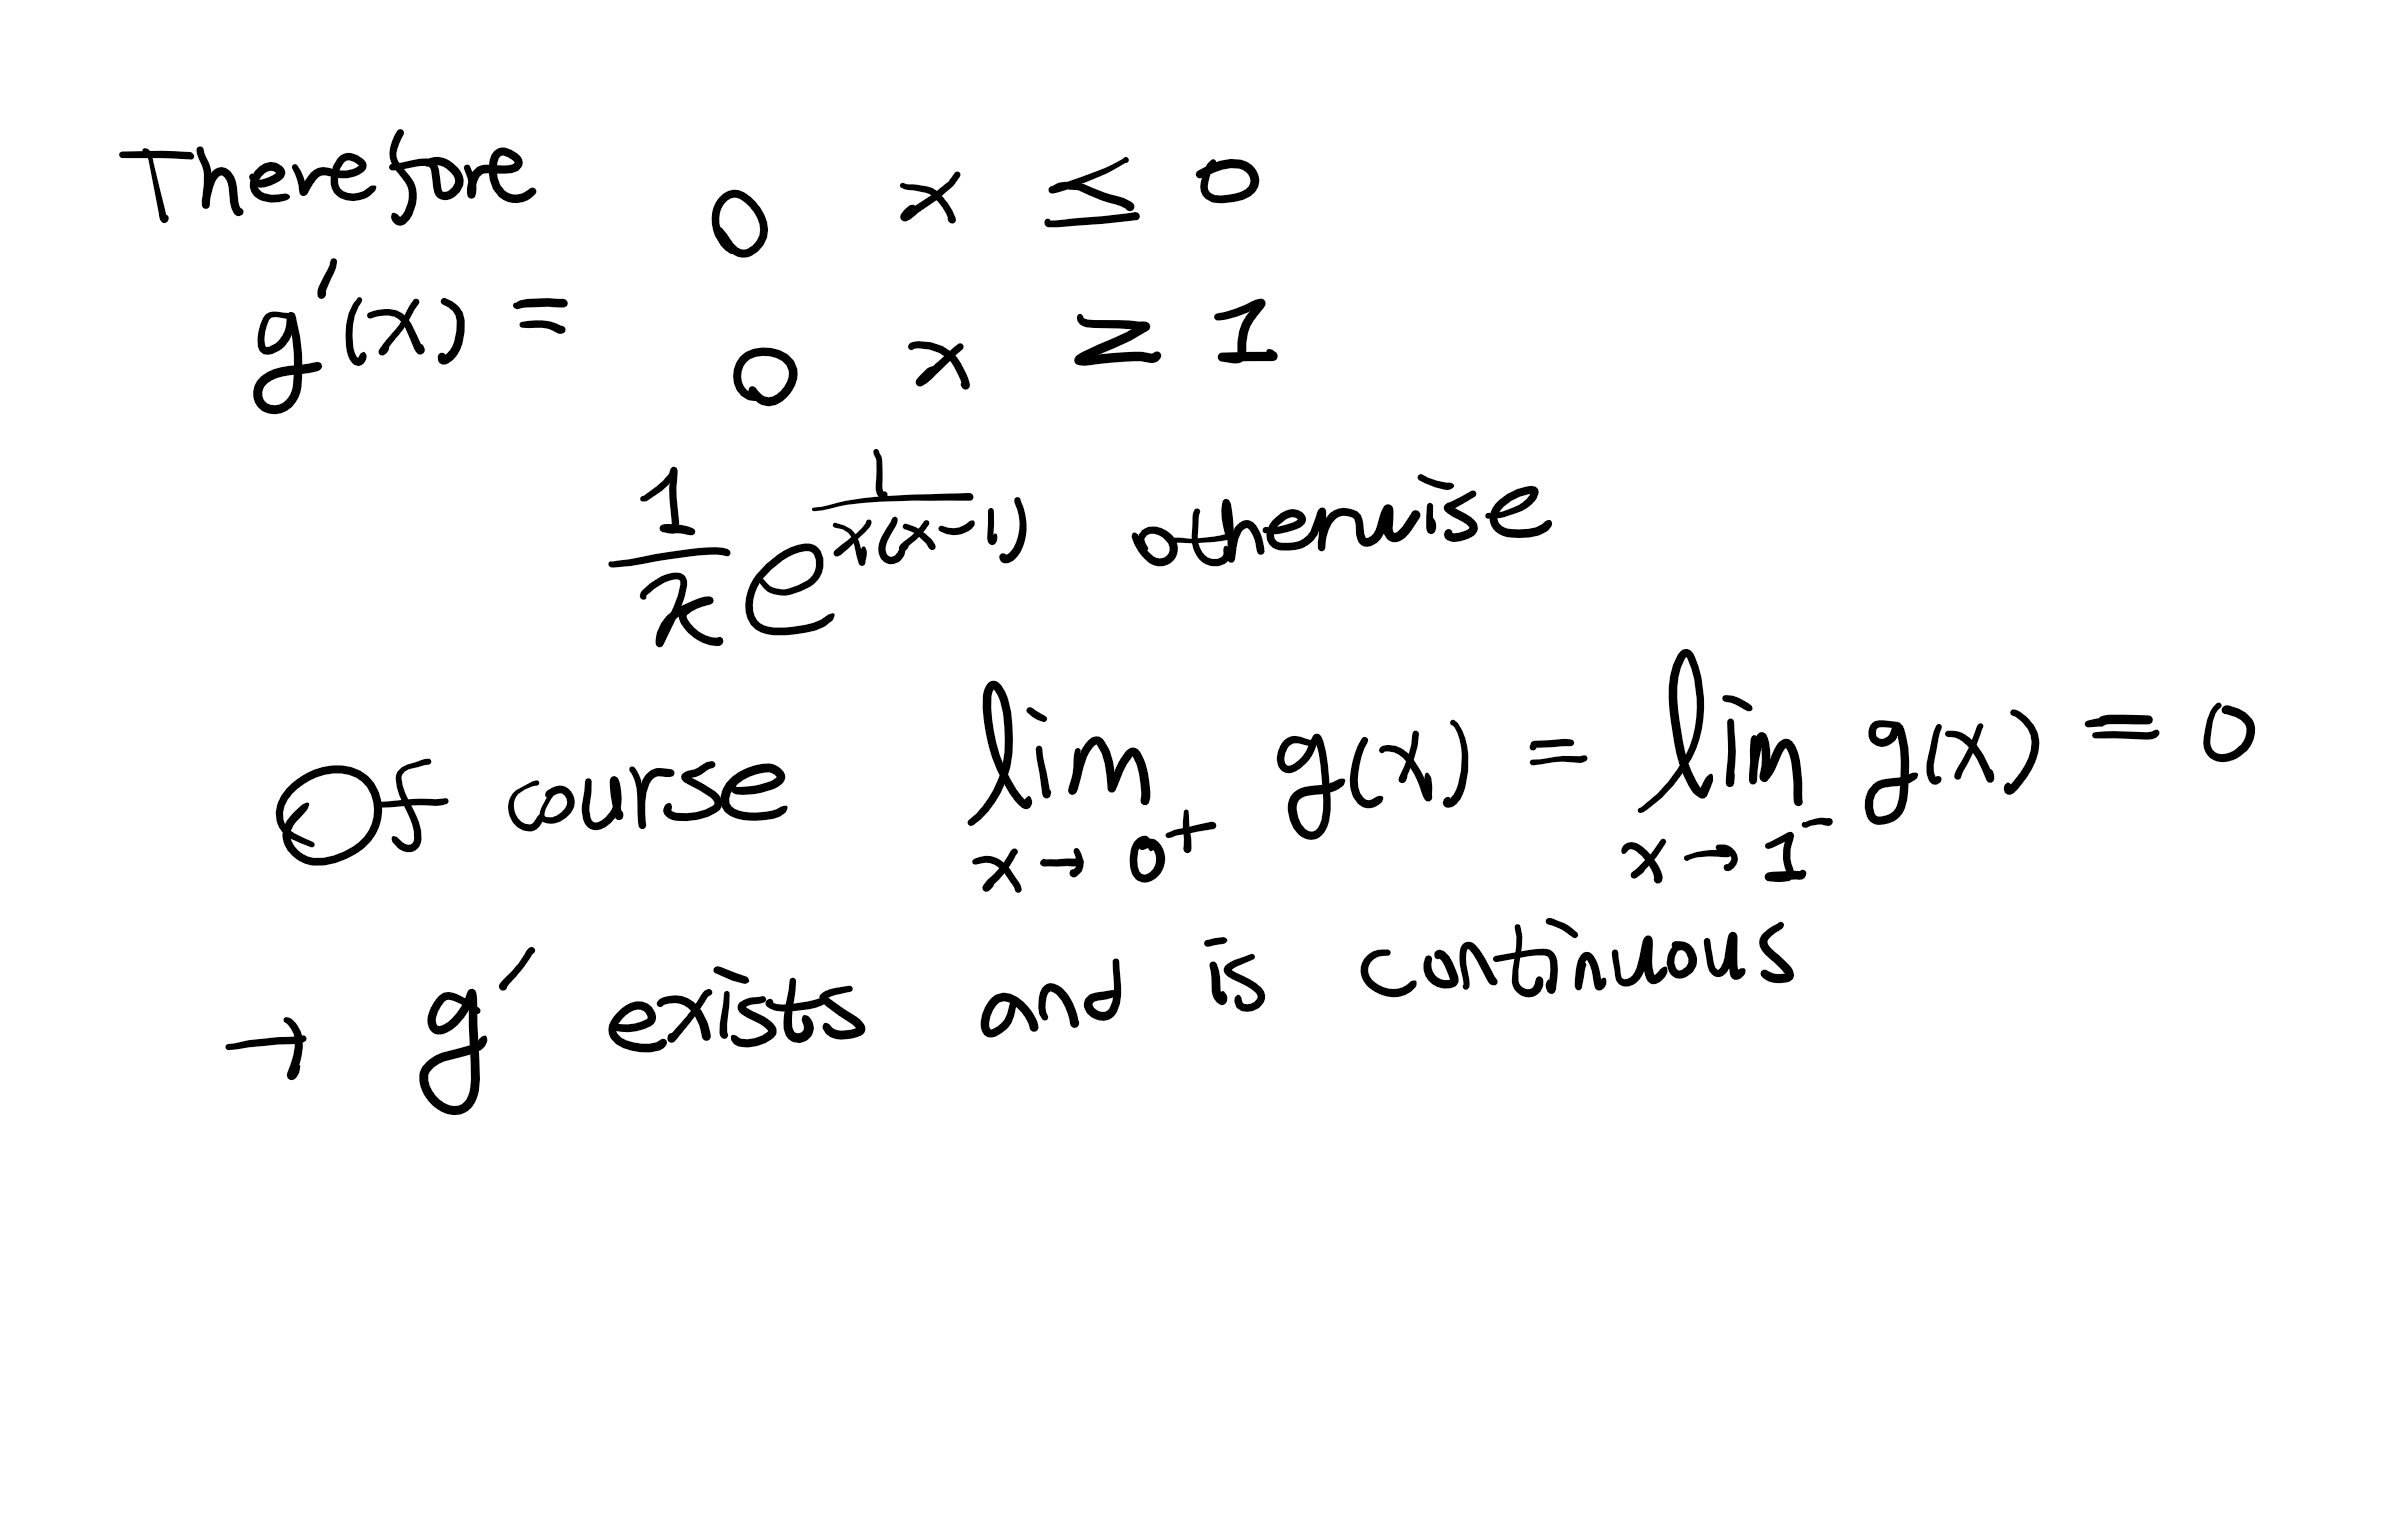 Therefore 0 x ≤ 0
g'(x) =
0 x ≥ 1
1/k e^(1/(x(x-1))) otherwise
Of course lim x→0⁺ g(x) = lim x→1⁻ g(x) = 0
→ g' exists and is continuous